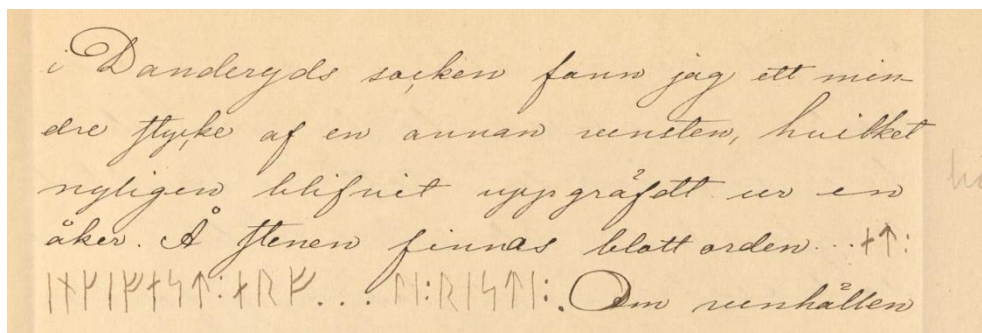 i Danderyds socken fann jag ett min-
dre stycke af en annan runsten, hvilket
nyligen blifvit uppgräfdt ur en
åker. Å stenen finnas blott orden ... ᛅᛏ:
ᛁᚾᚴᛁᚠᛅᛋᛏ:ᛅᚱᚠ... ᛐᛁ:ᚱᛁᛋᛐᛁ:. Om runhällen